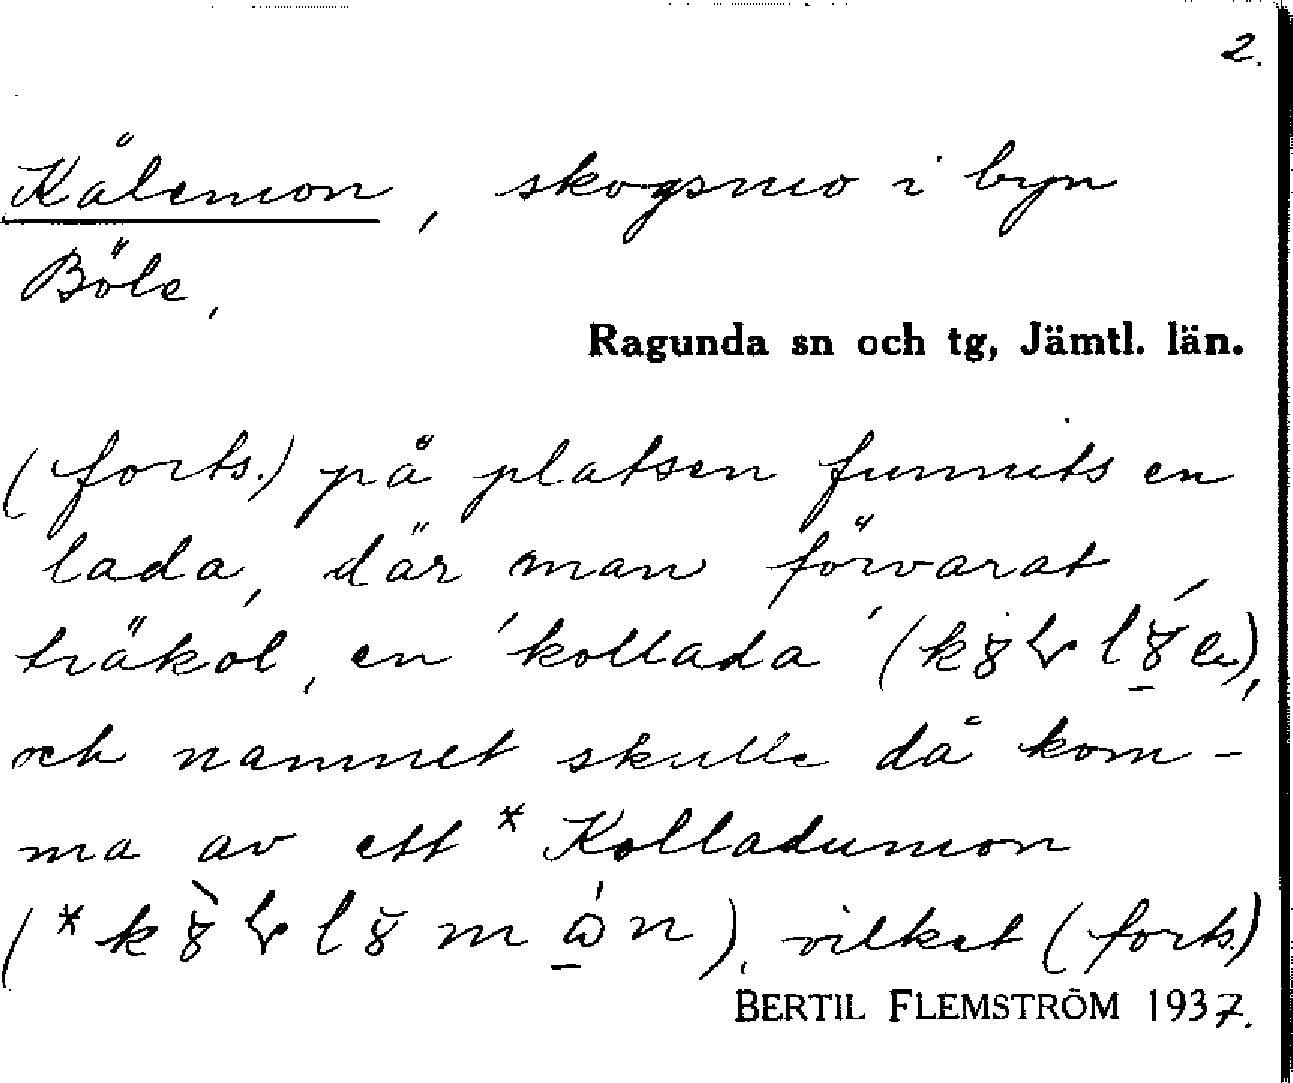 2.
Kålemon, skogsmo i byn
Böle,
Ragunda sn och tg, Jämtl. län.
(forts.) på platsen funnits en
lada, där man förvarat
träkol, en 'kollada'
och namnet skulle då kom-
ma av ett *Kolladumon
vilket (forts.)
BERTIL FLEMSTRÖM 1937.